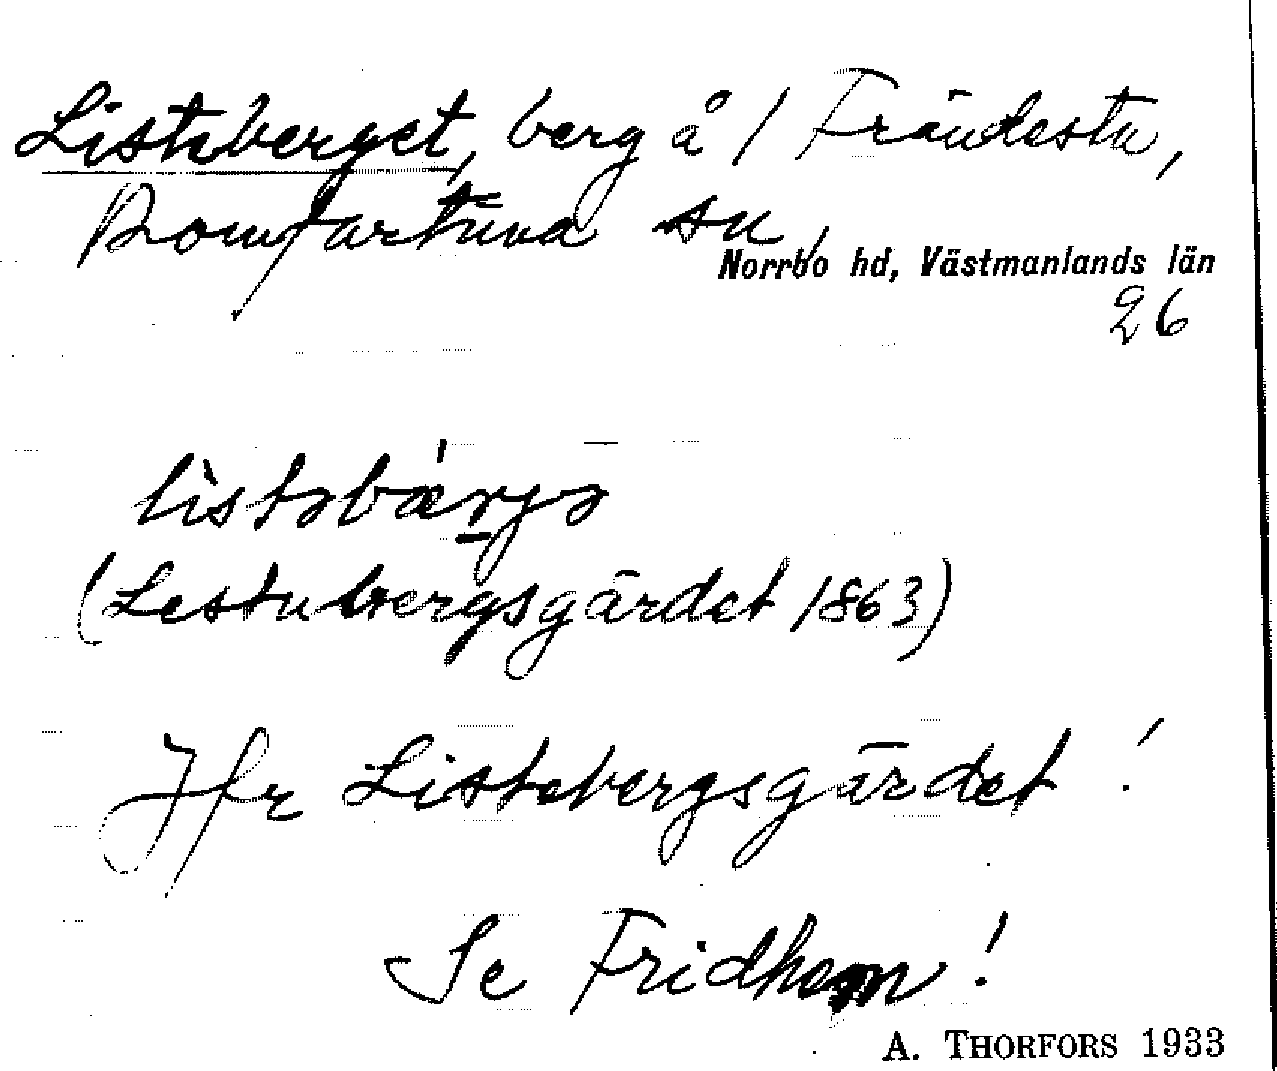 Listeberget, berg å / Frändesta,
Romfartuna sn,
Norrbo hd, Västmanlands län
26
lìstəbæ̀rjə
(Lestubergsgärdet 1863)
Jfr Listebergsgärdet !
Se Fridhem !
A. THORFORS 1933